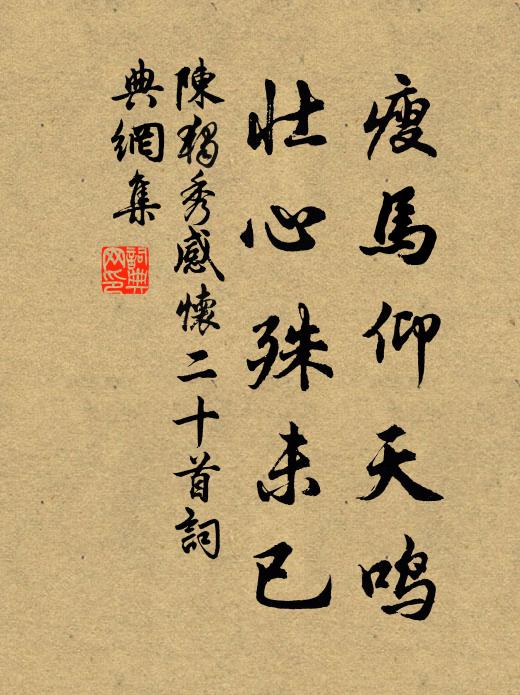 瘦馬仰天鳴
壯心殊未已
陳獨秀感懷二十首詞
典網集
詞典
网印